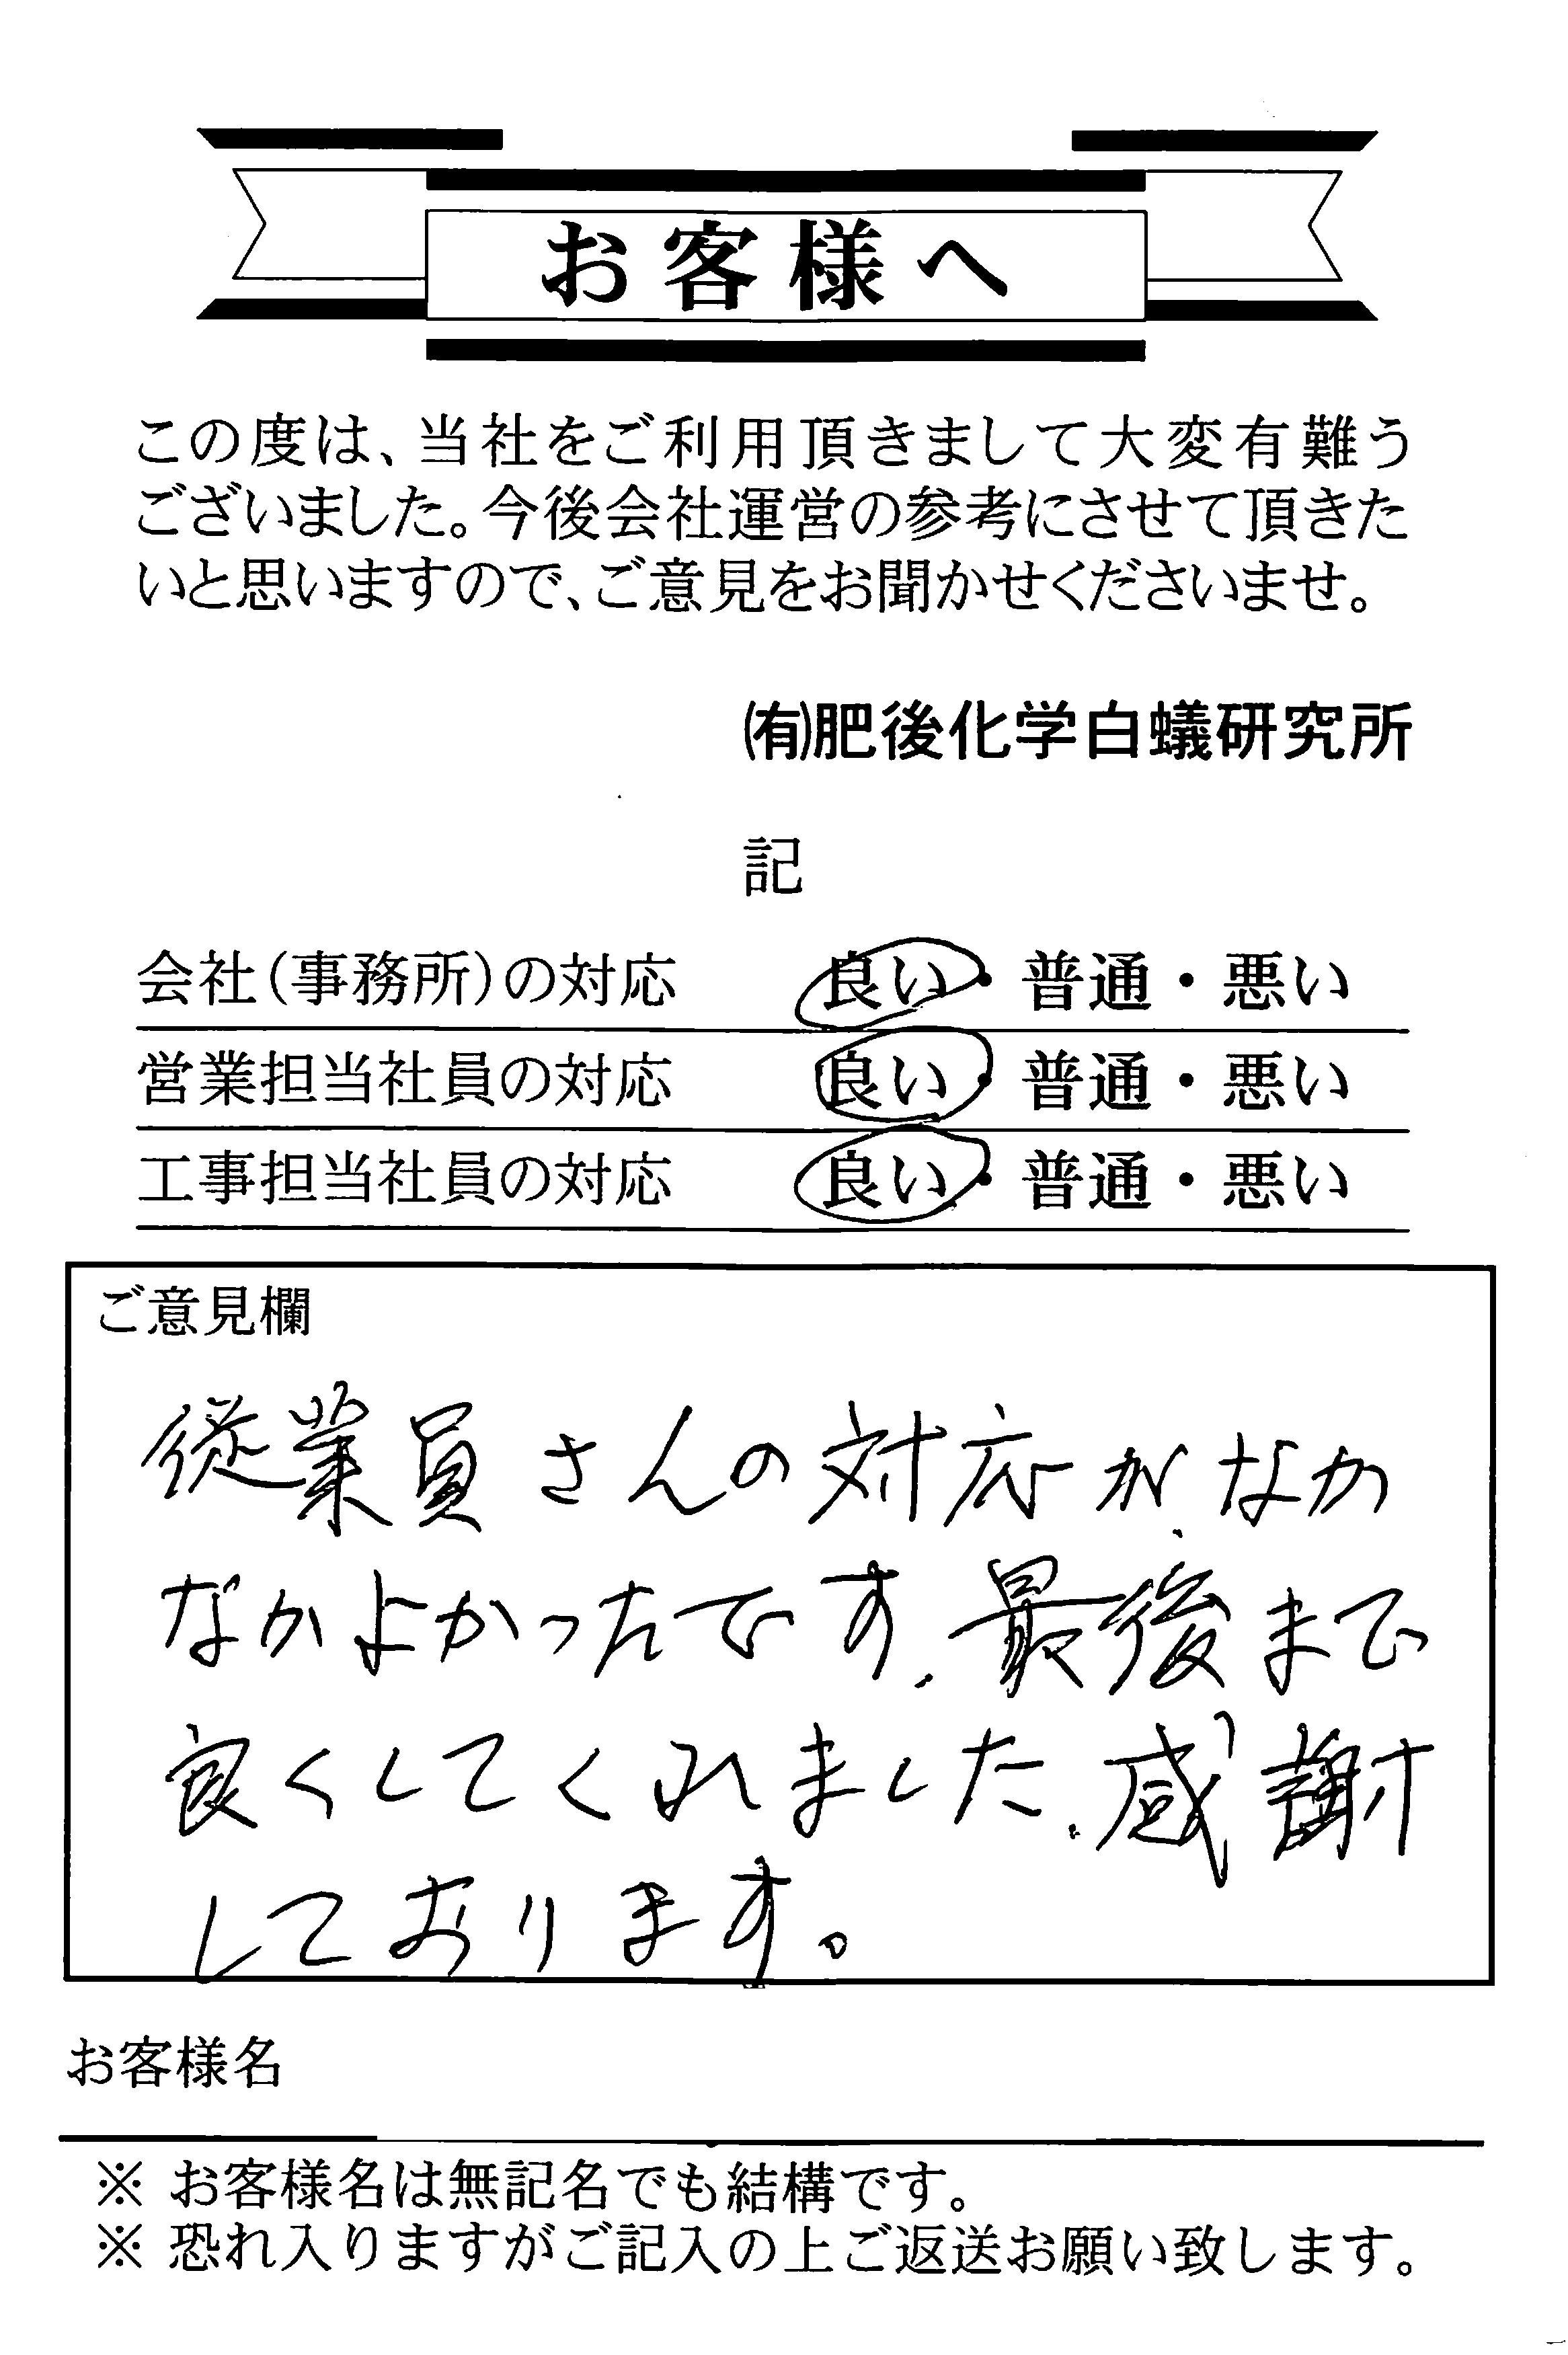 お客様へ
この度は、当社をご利用頂きまして大変有難う
ございました。今後会社運営の参考にさせて頂きた
いと思いますので、ご意見をお聞かせくださいませ。
㈲肥後化学白蟻研究所
記
会社(事務所)の対応 良い・普通・悪い
営業担当社員の対応 良い・普通・悪い
工事担当社員の対応 良い・普通・悪い
ご意見欄
従業員さんの対応がなか
なかよかったです、最後まで
良くしてくれました、感謝
しております。
お客様名
※ お客様名は無記名でも結構です。
※ 恐れ入りますがご記入の上ご返送お願い致します。